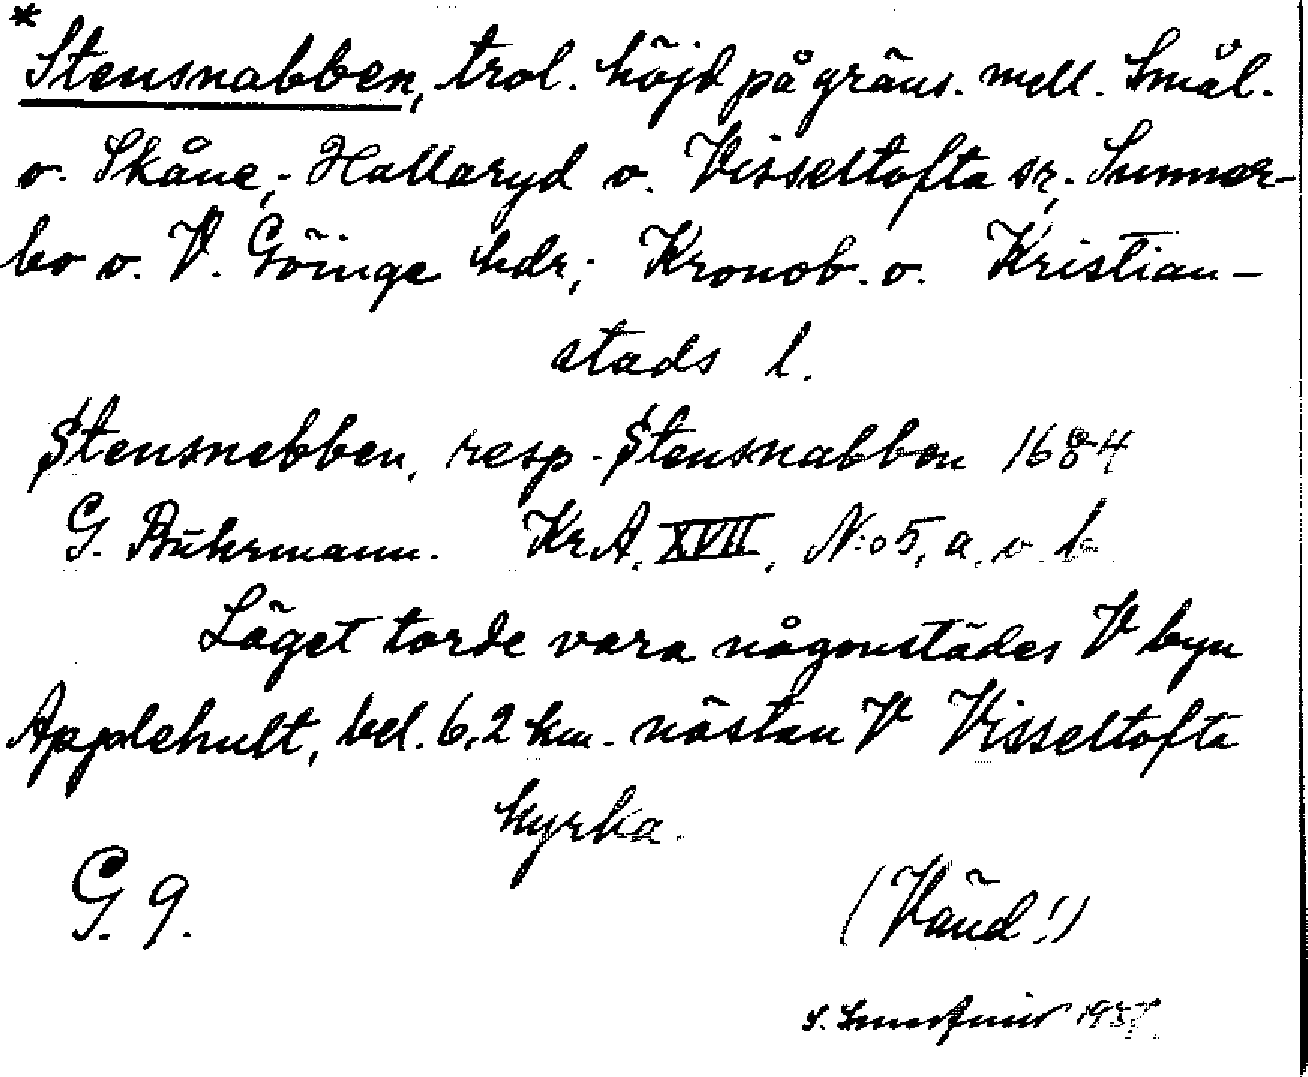 *
Stensnabben, trol. höjd på gräns. mell. Smål.
o. Skåne; Hallaryd o. Visseltofta sr; Sunner-
bo o. V. Göinge hdr; Kronob. o. Kristian-
stads l.
Stensnebben, resp. Stensnabben 1684
G. Buhrmann. KrA. XVII, N:o 5, a. o. b
Läget torde vara någonstädes V byn
Applehult, bel. 6,2 km. nästan V Visseltofta
kyrka.
G. 9. (Vänd!)
S.